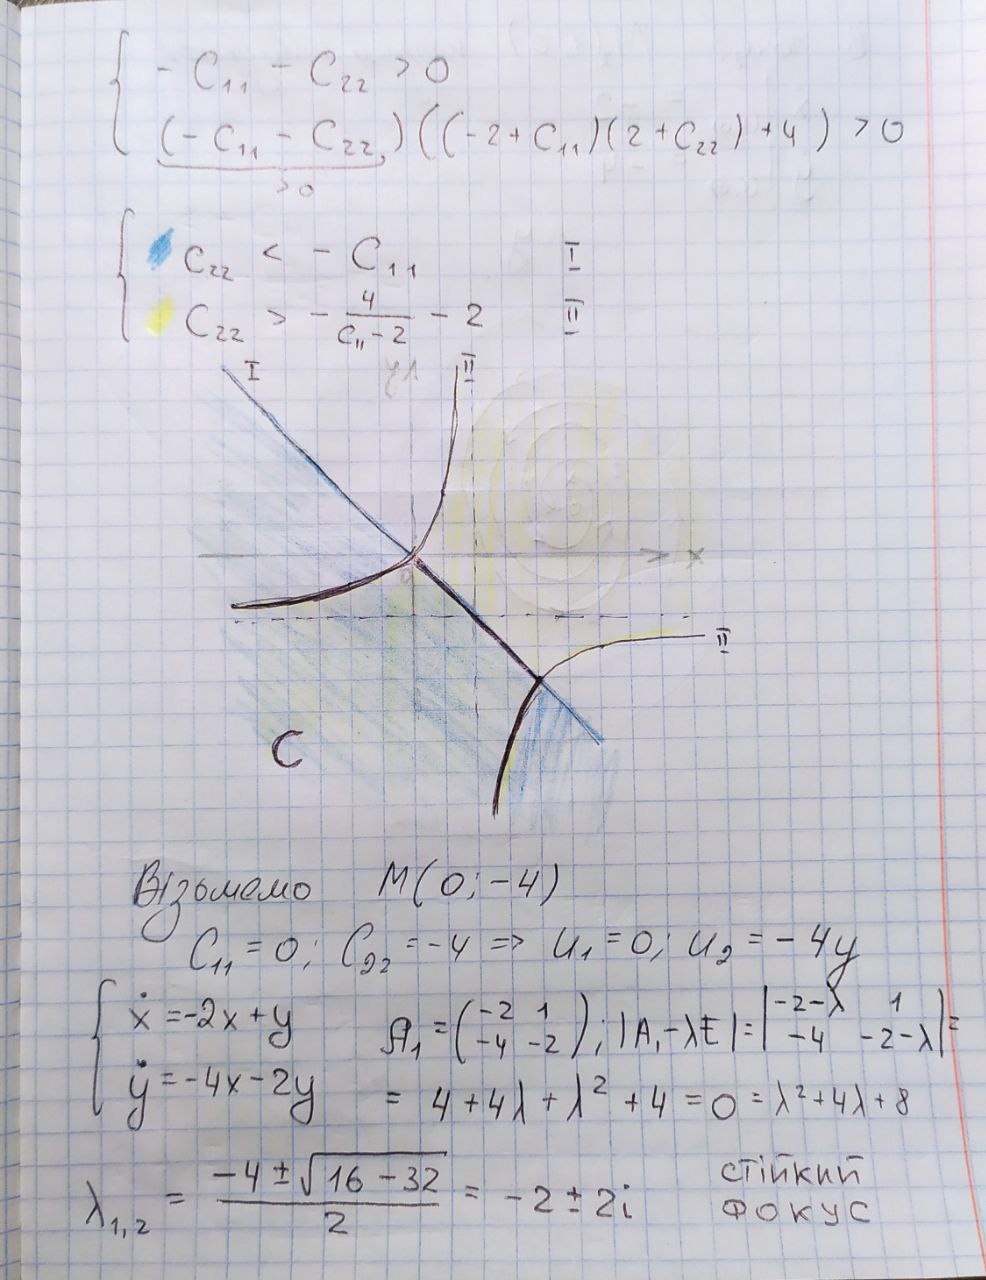 - C₁₁ - C₂₂ > 0
(- C₁₁ - C₂₂)((-2 + C₁₁)(2 + C₂₂) + 4) > 0
>0
C₂₂ < - C₁₁ I
C₂₂ > - 4/(C₁₁ - 2) - 2 II
I y II
0 x
II
C
Візьмемо M(0; -4)
C₁₁ = 0; C₂₂ = -4 => u₁ = 0; u₂ = -4y
ẋ = -2x + y A₁ = (-2 1; -4 -2); |A₁ - λE| = |-2-λ 1; -4 -2-λ| =
ẏ = -4x - 2y = 4 + 4λ + λ² + 4 = 0 = λ² + 4λ + 8
λ₁,₂ = (-4 ± √(16 - 32))/2 = -2 ± 2i стійкий
фокус